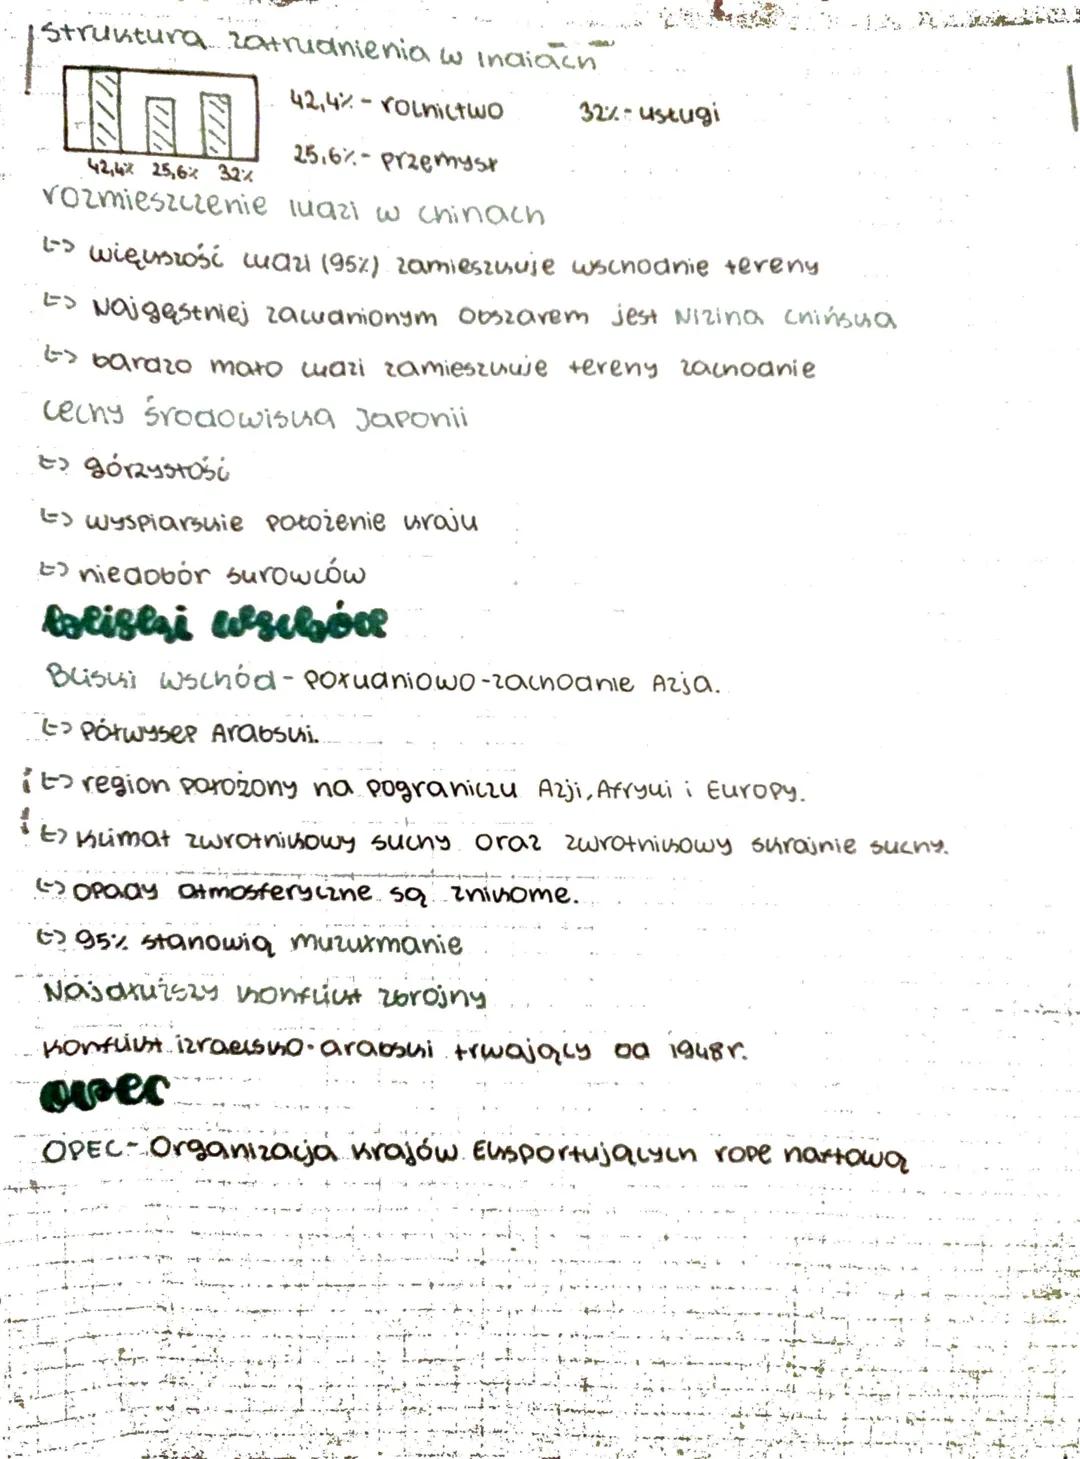 Struktura zatrudnienia w Indiach
42,4% - rolnictwo 32% - usługi
25,6% - przemysł
42,4% 25,6% 32%
rozmieszczenie ludzi w chinach
↳> większość ludzi (95%) zamieszkuje wschodnie tereny
↳> Najgęstniej zaludnionym obszarem jest Nizina Chińska
↳> bardzo mało ludzi zamieszkuje tereny zachodnie
cechy środowiska Japonii
↳> górzystość
↳> wyspiarskie położenie kraju
↳> niedobór surowców
bliski wschód
Bliski wschód - południowo-zachodnie Azja.
↳> Półwysep Arabski.
↳> region położony na pograniczu Azji, Afryki i Europy.
↳> klimat zwrotnikowy suchy oraz zwrotnikowy skrajnie suchy.
↳> opady atmosferyczne są znikome.
↳> 95% stanowią muzułmanie
Najdłuższy konflikt zbrojny
Konflikt izraelsko-arabski trwający od 1948r.
opec
OPEC - Organizacja Krajów Eksportujących ropę naftową